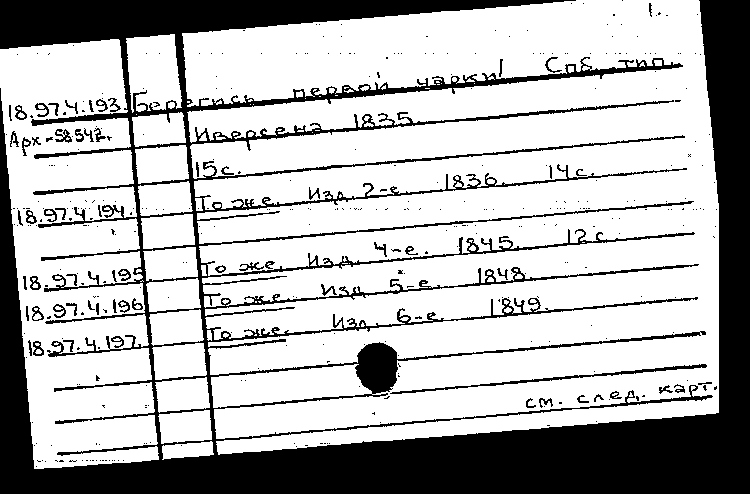 1.
18.97.4.193. Берегись первой чарки! Спб, тип.
Арх-58542. Иверсена, 1835.
15 с.
18.97.4.194. То же. Изд. 2-е. 1836. 14 с.
18.97.4.195 То же. Изд. 4-е. 1845. 12 с
18.97.4.196 То же. Изд 5-е. 1848.
18.97.4.197. То же. Изд. 6-е. 1849.
см. след. карт.